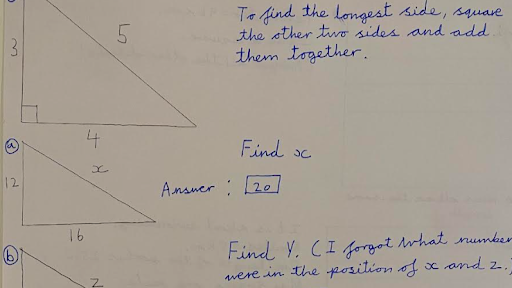 To find the longest side, square
the other two sides and add
them together.
3
5
4
Find x
a
x
12
Answer : 20
16
Find Y. (I forgot what number
were in the position of x and z.)
b
z